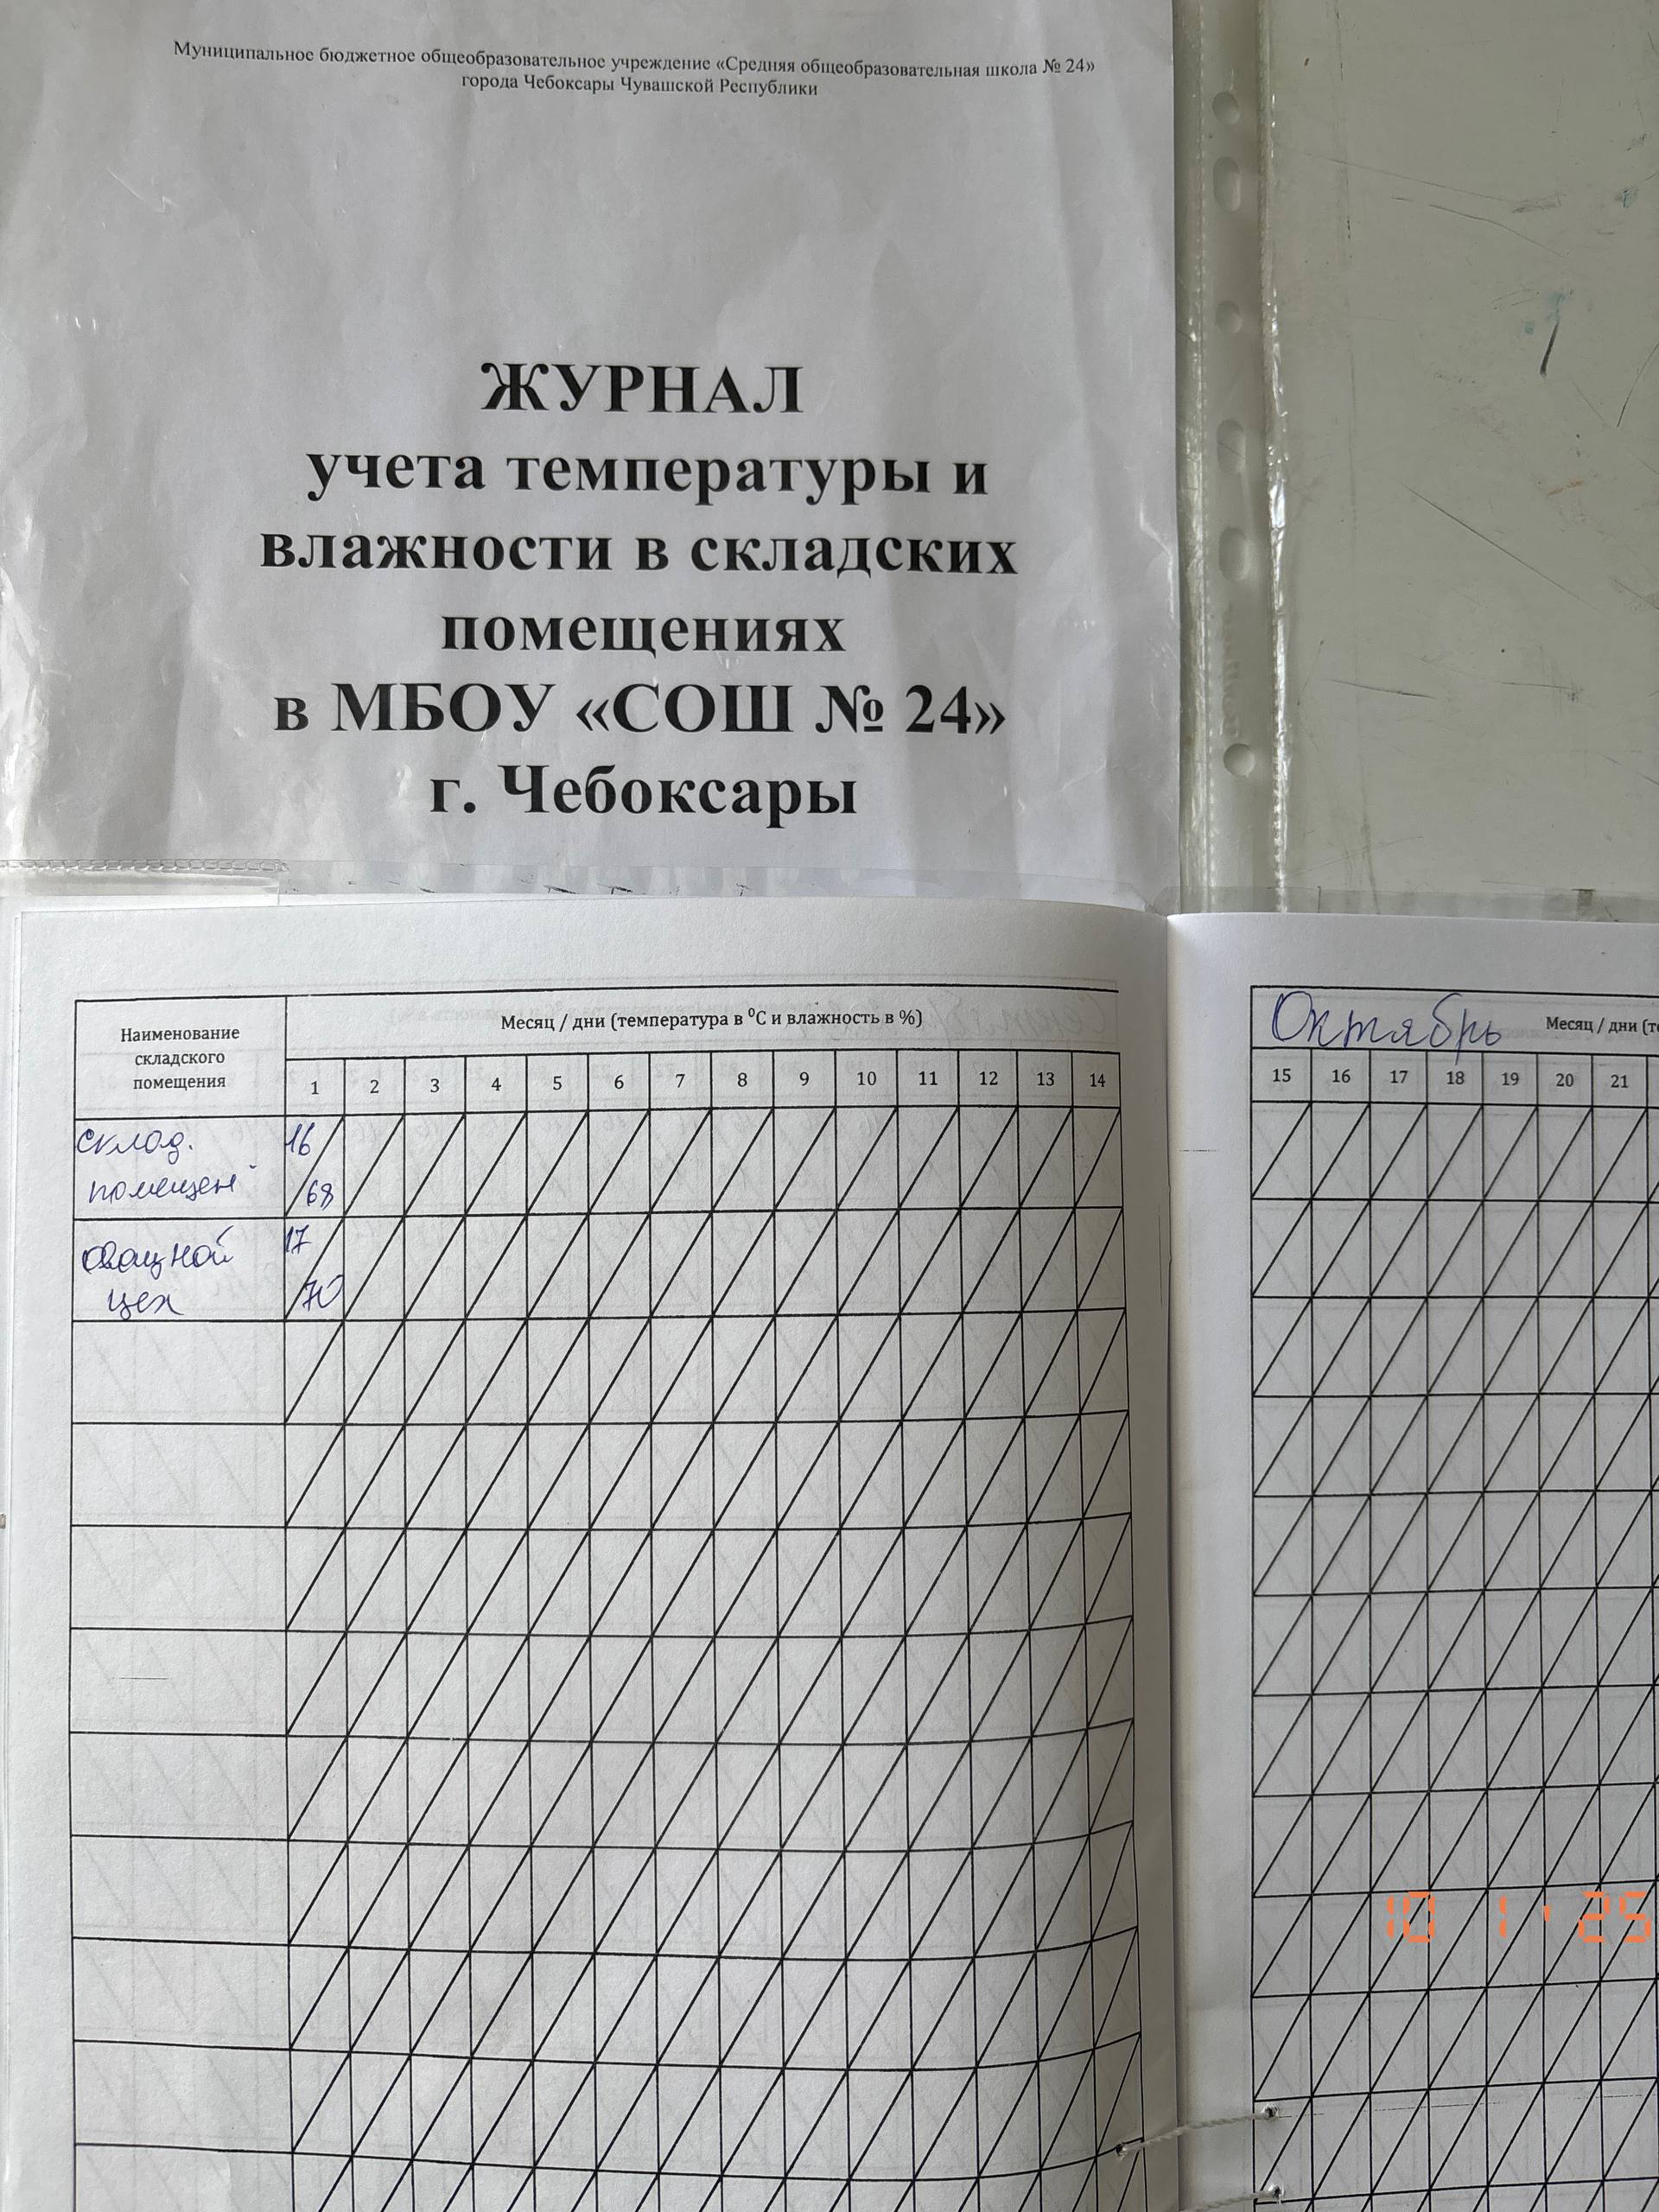 Муниципальное бюджетное общеобразовательное учреждение «Средняя общеобразовательная школа № 24»
города Чебоксары Чувашской Республики
ЖУРНАЛ
учета температуры и
влажности в складских
помещениях
в МБОУ «СОШ № 24»
г. Чебоксары
Наименование
складского
помещения
Месяц / дни (температура в ⁰С и влажность в %)
1 2 3 4 5 6 7 8 9 10 11 12 13 14
склад.
помещен
16
68
овощной
цех
17
70
Октябрь
Месяц / дни (те
15 16 17 18 19 20 21
10 1 ' 25